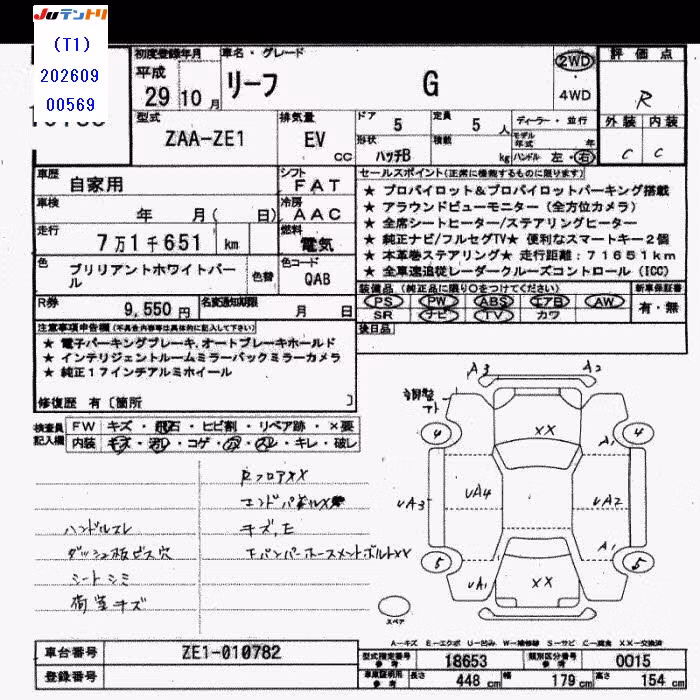 JUテントリ
(T1)
202609
00569
初度登録年月
平成
29 10月
車名・グレード
リーフ G
2WD
4WD
評価点
R
型式
ZAA-ZE1
排気量
EV cc
ドア 5
定員 5人
形状 ハッチB
積載 kg
ディーラー・並行
モデル年式 年
ハンドル 左・右
外装 内装
C C
車歴
自家用
シフト
FAT
車検
年 月( 日)
冷房
AAC
走行
7万1千651 km
燃料
電気
色
ブリリアントホワイトパール
色替
色コード
QAB
R券
9,550円
名変通知期限
月 日
セールスポイント(正常に機能するものに限ります)
★ プロパイロット&プロパイロットパーキング搭載
★ アラウンドビューモニター(全方位カメラ)
★ 全席シートヒーター/ステアリングヒーター
★ 純正ナビ/フルセグTV★ 便利なスマートキー2個
★ 本革巻ステアリング★ 走行距離:71651km
★ 全車速追従レーダークルーズコントロール(ICC)
装備品(純正品に限り〇をつけてください)
新車保証書
PS PW ABS エアB AW
SR ナビ TV カワ
有・無
後日品
注意事項申告欄(不具合内容等は具体的に記入して下さい)
★ 電子パーキングブレーキ、オートブレーキホールド
★ インテリジェントルームミラーバックミラーカメラ
★ 純正17インチアルミホイール
修復歴 有〔箇所 〕
検査員記入欄
FW キズ・飛石・ヒビ割・リペア跡・×要
内装 キズ・汚レ・コゲ・穴・スレ・キレ・破レ
RフロアXX
エンドパネルXX
ハンドルスレ
キズ、E
ダッシュ板ビス穴
シートシミ
荷室キズ
A3 A2
4 4
XX
A1
UA3 UA4 UA2
5 5
A1
UA1 XX
スペア
A-キズ E-エクボ U-凹み W-補修跡 S-サビ C-腐食 XX-交換済
車台番号 ZE1-010782
登録番号
型式指定番号 参考 18653
類別区分番号 参考 0015
車庫証明用 参考
長さ 448 cm
幅 179 cm
高さ 154 cm